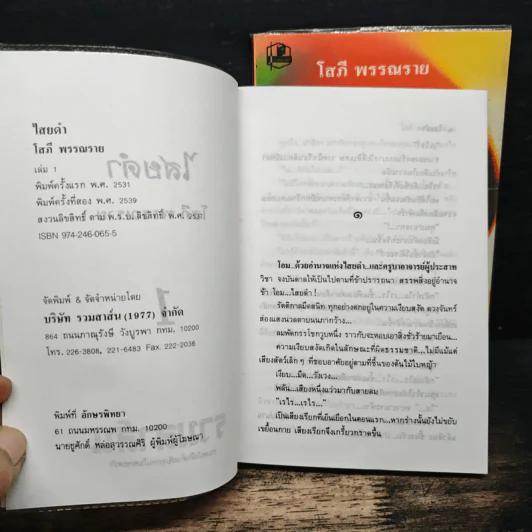 โสภี พรรณราย
ไสยดำ
โสภี พรรณราย
เล่ม 1
พิมพ์ครั้งแรก พ.ศ. 2531
พิมพ์ครั้งที่สอง พ.ศ. 2539
สงวนลิขสิทธิ์ ตาม พ.ร.บ.ลิขสิทธิ์ พ.ศ. 2537
ISBN 974-246-065-5
จัดพิมพ์ & จัดจำหน่ายโดย
บริษัท รวมสาส์น (1977) จำกัด
864 ถนนภาณุรังษี วังบูรพา กทม. 10200
โทร. 226-3808, 221-6483 Fax. 222-2036
พิมพ์ที่ อักษรพิทยา
61 ถนนมหรรณพ กทม. 10200
นายชูศักดิ์ หล่อสุวรรณศิริ ผู้พิมพ์ผู้โฆษณา
๑
โอม..ด้วยอำนาจแห่งไสยดำ..และครูบาอาจารย์ผู้ประสาท
วิชา จงบันดาลให้เป็นไปตามที่ข้าปรารถนา สรรพสิ่งอยู่ใต้อำนาจ
ข้า โอม...ไสยดำ !
รัตติกาลมืดสนิท ทุกอย่างตกอยู่ในความเงียบสงัด ดวงจันทร์
ส่องแสงนวลตาบนนภากว้าง...
ลมพัดกรรโชกวูบหนึ่ง ราวกับจะหอบเอาสิ่งชั่วร้ายมาเยือน...
ความเงียบสงัดเกิดในลักษณะที่ผิดธรรมชาติ...ไม่มีแม้แต่
เสียงสัตว์เล็ก ๆ ที่ชอบอาศัยอยู่ตามที่ชื้นของต้นไม้ใบหญ้า
เงียบ...มืด...วังเวง...
พลัน...เสียงหนึ่งแว่วมากับสายลม
"เรไร...เรไร..."
เป็นเสียงเรียกที่เยือกเย็นในตอนแรก...หากร่างนั้นยังไม่ขยับ
เขยื้อนกาย เสียงเรียกจึงเกรี้ยวกราดขึ้น